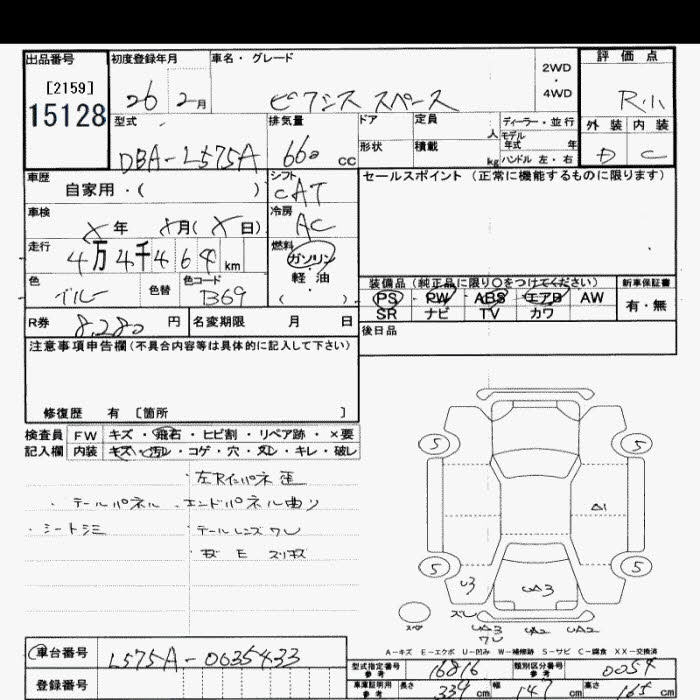 出品番号
[2159]
15128
初度登録年月
26 2月
車名・グレード
ピクシス スペース
2WD
・
4WD
評価点
R 1
外装 内装
D C
型式
DBA-L575A
排気量
660 cc
ドア
定員
人
形状
積載
kg
ディーラー・並行
モデル年式 年
ハンドル 左・右
車歴
自家用・( )
シフト
CAT
セールスポイント (正常に機能するものに限ります)
車検
X年 X月(X日)
冷房
AC
走行
4万4千464km
燃料
ガソリン
・
軽・油
( )
色
ブルー
色替
色コード
B69
R券
8,280円
名変期限 月 日
装備品 (純正品に限り〇をつけてください)
PS PW ABS エアB AW
SR ナビ TV カワ
新車保証書
有・無
後日品
注意事項申告欄(不具合内容等は具体的に記入して下さい)
修復歴 有 [箇所 ]
検査員記入欄
FW キズ・飛石・ヒビ割・リペア跡・×要
内装 キズ・汚レ・コゲ・穴・ヌレ・キレ・破レ
左Rインパネ 歪
・テールパネル・エンドパネル曲り
・シートシミ
・テールレンズワレ
5 5
A1
5 5
U3
UA3
ズレ
スペア
UA3 UA2 UA2
ワレ
A-キズ E-エクボ U-凹み W-補修跡 S-サビ C-腐食 XX-交換済
車台番号
L575A-0635433
登録番号
型式指定番号
参考
16816
類別区分番号
参考
0054
車庫証明用
参考
長さ 339cm
幅 147cm
高さ 165cm